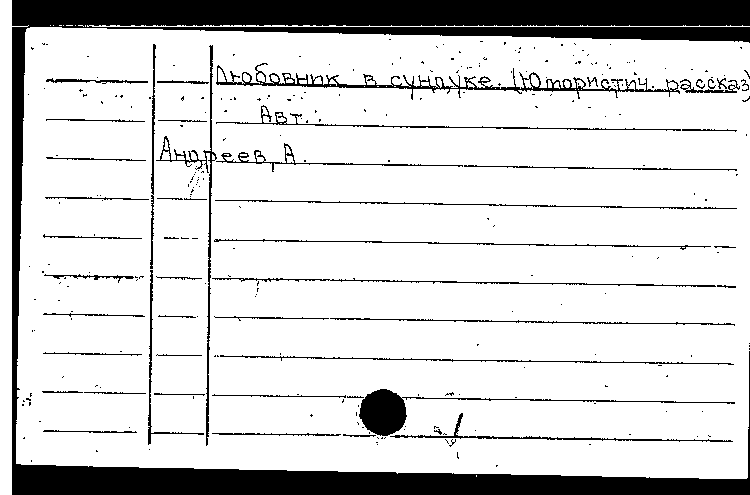 Любовник в сундуке. (Юмористич. рассказ)
Авт.:
Андреев, А.